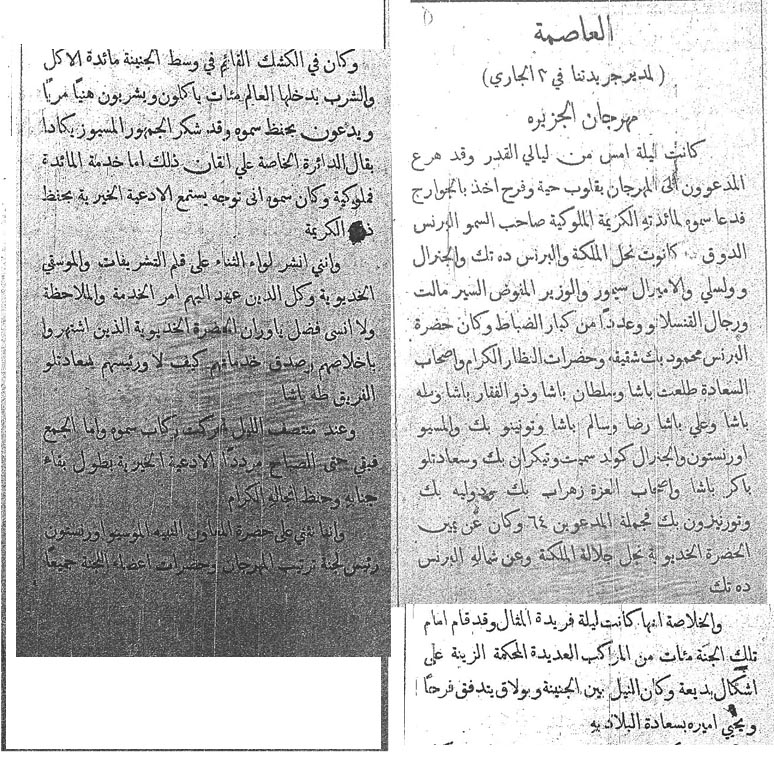 العاصمة
( لمدير جريدتنا في ٢ الجاري )
مهرجان الجزيره
كانت ليلة امس من ليالي القدر وقد هرع
المدعوون الى المهرجان بقلوب حية وفرح اخذ بالجوارج
فدعا سموه لمائدته الكريمة الملوكية صاحب السمو البرنس
الدوق كانوت نجل الملكة والبرنس ده تك والجنرال
وولسلي والاميرال سيمور والوزير المفوض السير مالت
ورجال القنسلاتو وعددًا من كبار الضباط وكان حضرة
البرنس محمود بك شقيقه وحضرات النظار الكرام واصحاب
السعادة طلعت باشا وسلطان باشا وذو الفقار باشا وطه
باشا وعلي باشا رضا وسالم باشا وتونينو بك والمسيو
اورنستون والجنرال كولد سميت وتيكران بك وسعادتلو
باكر باشا واصحاب العزة زهراب بك ودوليه بك
وتورنيزون بك فجملة المدعوين ٦٤ وكان عن يمين
الحضرة الخديوية نجل جلالة الملكة وعن شماله البرنس
ده تك
والخلاصة انها كانت ليلة فريدة المثال وقد قام امام
تلك الجنة مئات من المراكب العديدة المحكمة الزينة على
اشكال بديعة وكان النيل بين الجنينة وبولاق يتدفق فرحًا
ويحيي اميره بسعادة البلاد به
وكان في الكشك القائم في وسط الجنينة مائدة الاكل
والشرب يدخلها العالم مئات ياكلون ويشربون هنيًا مريًا
ويدعون بحفظ سموه وقد شكر الجمهور المسيوز يكادا
بقال الدائرة الخاصة على اتقان ذلك اما خدمة المائدة
فملوكية وكان سموه انى توجه يستمع الادعية الخيرية بحفظ
الكريمة
وانني انشر لواء الثناء على قلم التشريفات والموسيقي
الخديوية وكل الذين عهد اليهم امر الخدمة والملاحظة
ولا انسى فضل ياوران الحضرة الخديوية الذين اشتهروا
باخلاصهم وصدق خدماتهم كيف لا ورئيسهم سعادتلو
الفريق طه باشا
وعند منتصف الليل تحركت ركاب سموه واما الجمع
فبقي حتى الصباح مرددًا الادعية الخيرية بطول بقاء
جنابه وحفظ انجاله الكرام
واننا نثني على حضرة المعاون النبيه الموسيو اورنستون
رئيس لجنة ترتيب المهرجان وحضرات اعضاء اللجنة جميعًا